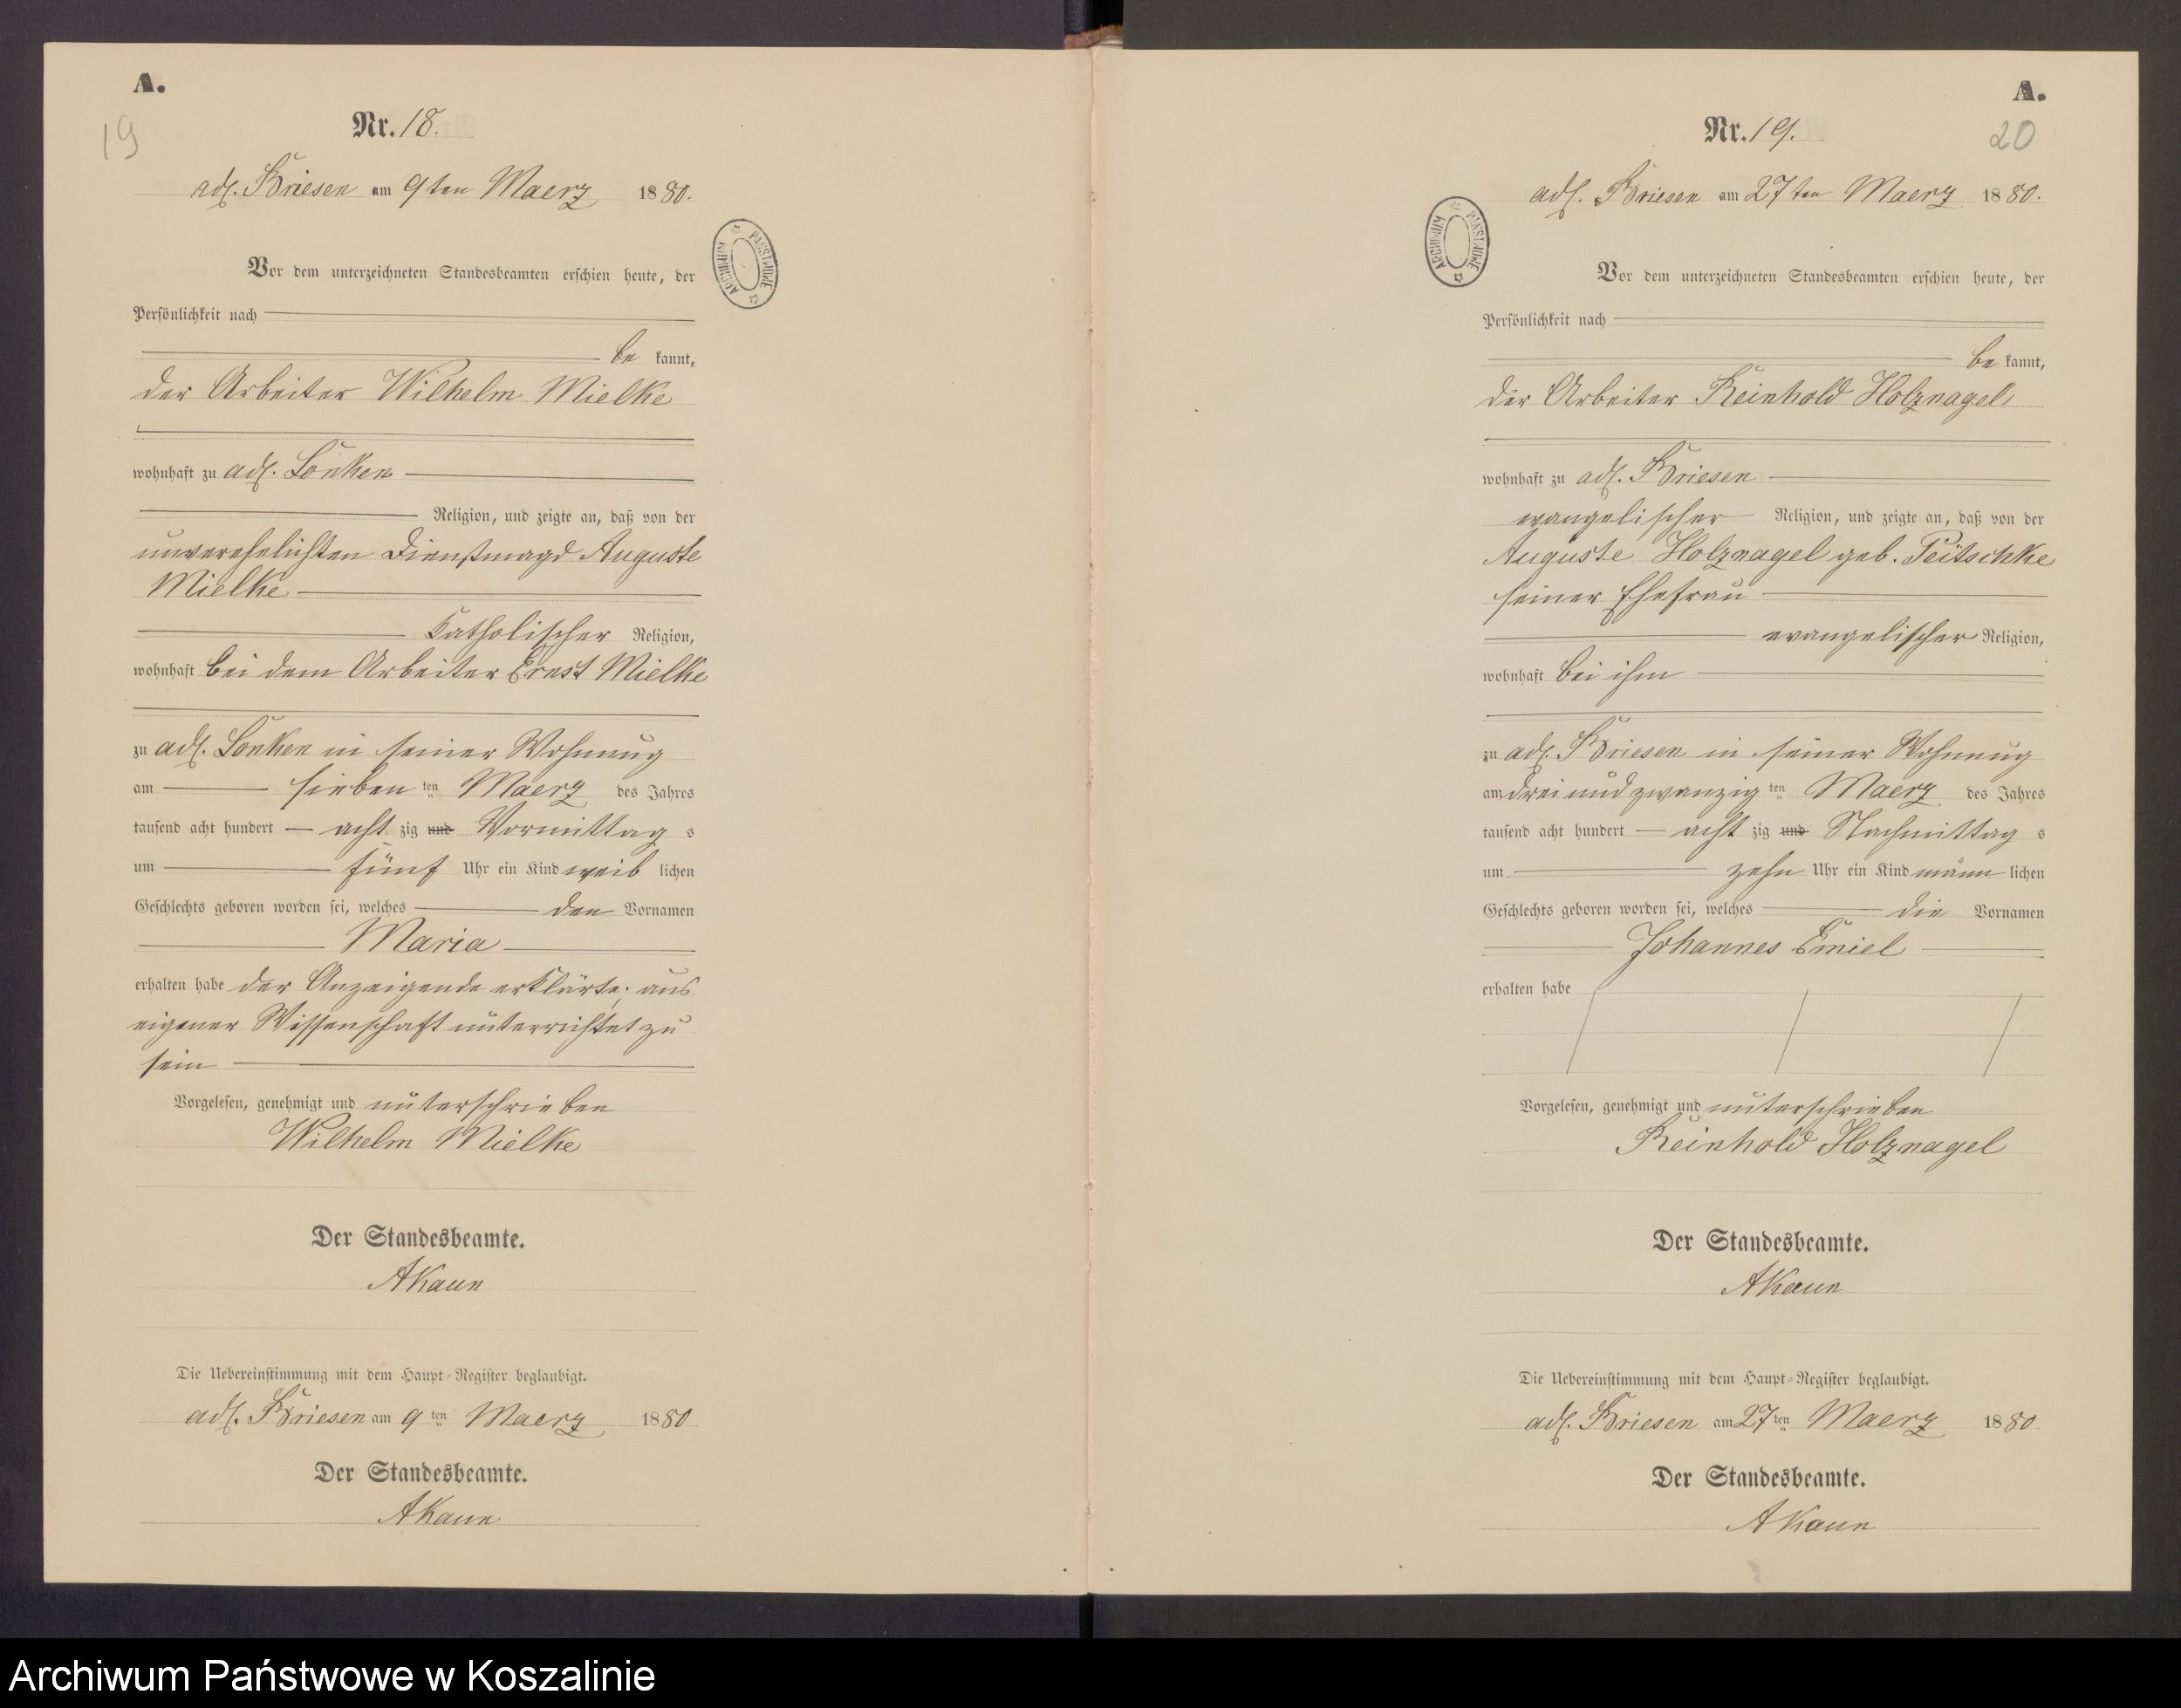 A.
19
Nr. 18.
adl. Briesen am 9ten Maerz 1880.
ARCHIWUM PAŃSTWOWE
Vor dem unterzeichneten Standesbeamten erschien heute, der
Persönlichkeit nach
be kannt,
der Arbeiter Wilhelm Mielke
wohnhaft zu adl. Lonken
Religion, und zeigte an, daß von der
unverehelichten Dienstmagd Auguste
Mielke
Katholischer Religion,
wohnhaft bei dem Arbeiter Ernst Mielke
zu adl. Lonken in seiner Wohnung
am sieben ten Maerz des Jahres
tausend acht hundert acht zig und Vormittag s
um fünf Uhr ein Kind weib lichen
Geschlechts geboren worden sei, welches den Vornamen
Maria
erhalten habe der Anzeigende erklärte; aus
eigener Wissenschaft unterrichtet zu
sein
Vorgelesen, genehmigt und unterschrieben
Wilhelm Mielke
Der Standesbeamte.
AKaun
Die Uebereinstimmung mit dem Haupt-Register beglaubigt.
adl. Briesen am 9 ten Maerz 1880
Der Standesbeamte.
AKaun
A.
20
Nr. 19.
adl. Briesen am 27ten Maerz 1880.
ARCHIWUM PAŃSTWOWE
Vor dem unterzeichneten Standesbeamten erschien heute, der
Persönlichkeit nach
be kannt,
der Arbeiter Reinhold Holznagel
wohnhaft zu adl. Briesen
evangelischer Religion, und zeigte an, daß von der
Auguste Holznagel geb. Peitschke
seiner Ehefrau
evangelischer Religion,
wohnhaft bei ihm
zu adl. Briesen in seiner Wohnung
am dreiundzwanzig ten Maerz des Jahres
tausend acht hundert acht zig und Nachmittag s
um zehn Uhr ein Kind männ lichen
Geschlechts geboren worden sei, welches die Vornamen
Johannes Emiel
erhalten habe
Vorgelesen, genehmigt und unterschrieben
Reinhold Holznagel
Der Standesbeamte.
AKaun
Die Uebereinstimmung mit dem Haupt-Register beglaubigt.
adl. Briesen am 27 ten Maerz 1880
Der Standesbeamte.
AKaun
Archiwum Państwowe w Koszalinie